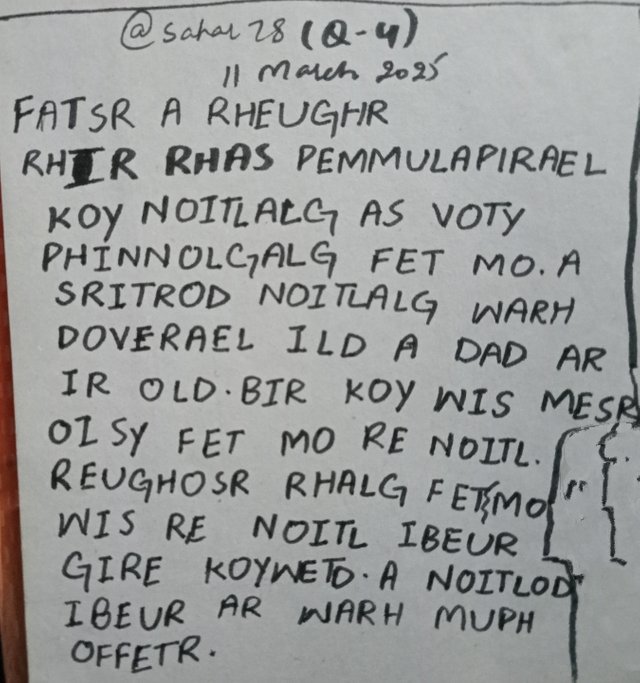 @sahar 28 (Q-4)
11 March 2025
FATSR A RHEUGHR
RHIR RHAS PEMMULAPIRAEL
KOY NOITLALG AS VOTY
PHINNOLGALG FET MO. A
SRITROD NOITLALG WARH
DOVERAEL ILD A DAD AR
IR OLD. BIR KOY WIS MESR
OISY FET MO RE NOITL.
REUGHOSR RHALG FET MO
WIS RE NOITL IBEUR
GIRE KOYWETD. A NOITLOD
IBEUR AR WARH MUPH
OFFETR.